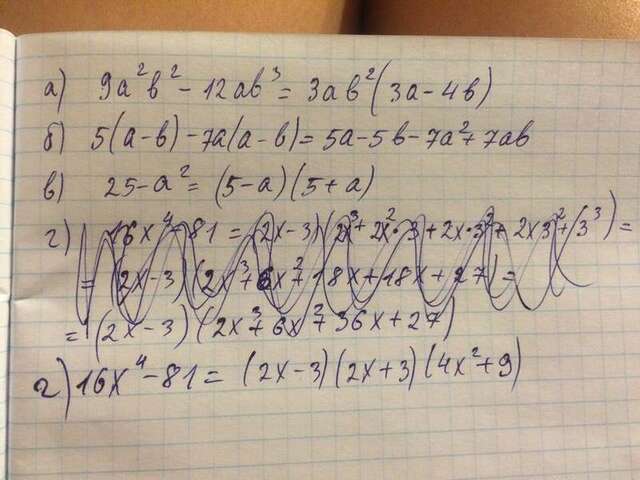 а) 9a²b² - 12ab³ = 3ab²(3a - 4b)
б) 5(a-b) - 7a(a-b) = 5a - 5b - 7a² + 7ab
в) 25 - a² = (5-a)(5+a)
г) 16x⁴ - 81 = (2x-3)(2x³ + 2x²·3 + 2x·3² + 2x3² + 3³) =
= (2x-3)(2x³ + 6x² + 18x + 18x + 27) =
= (2x-3)(2x³ + 6x² + 36x + 27)
г) 16x⁴ - 81 = (2x-3)(2x+3)(4x²+9)